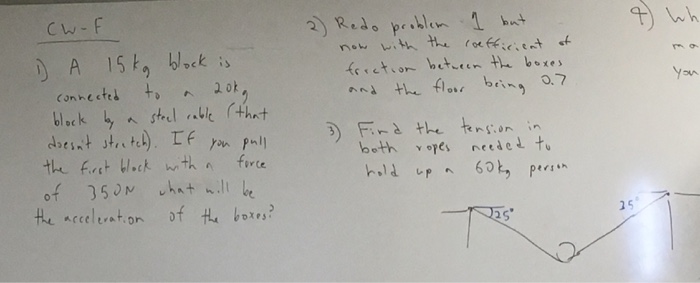 CW-F
1) A 15kg block is
connected to a 20kg
block by a steel cable (that
doesn't stretch). If you pull
the first block with a force
of 350N what will be
the acceleration of the boxes?
2) Redo problem 1 but
now with the coefficient of
friction between the boxes
and the floor being 0.7
3) Find the tension in
both ropes needed to
hold up a 60kg person
25°
25°
4) Wh
ma
you